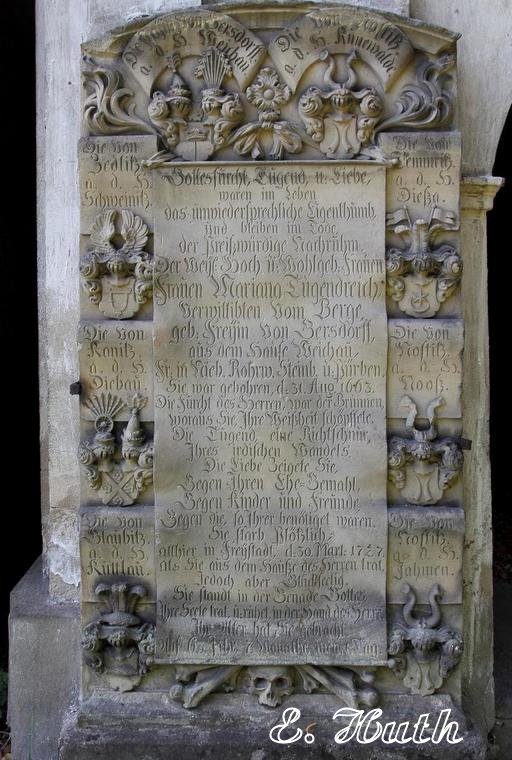 Die von Gersdorff
a. d. H. Weichau
Die von Nostitz
a. d. H. Kunewalde
Die von
Zedlitz
a. d. H.
Schweinitz.
Die von
Kanitz,
a. d. H.
Diebau.
Die von
Glaubitz
a. d. H.
Kuttlau
Gottesfurcht, Tugend, u. Liebe,
waren im Leben
das unwiedersprechliche Eigenthumb,
und bleiben im Tode
der Preißwürdige Nachruhm.
Der Weyl. Hoch u. Wohlgeb. Frauen
Frauen Mariana Tugendreich,
Verwittibten Vom Berge,
geb. Freyin von Gersdorff,
aus dem Hause Weichau,
Fr. in
Sie war gebohren, d. 31. Aug. 1663.
Die Furcht des Herren, war der Brunnen,
woraus Sie Ihre Weisheit schöpffete.
Die Tugend, eine Richtschnur,
Ihres irdischen Wandels.
Die Liebe Zeigete Sie,
Gegen Ihren Ehe-Gemahl,
Gegen Kinder und Freunde,
Gegen die, so Ihrer benötiget waren.
Sie starb Plötzlich,
allhier in Freystadt, d. 30. Mart. 1727.
als Sie aus dem Hauße des Herren trat,
Jedoch aber Glückseelig.
Sie standt in der Genade Gottes,
Ihre Seele trat, u. ruhet, in der Hand des Herrn
Ihr Alter hat Sie gebracht,
Auf 63. Jahr, 7. Monathe,
Die von
Temmritz,
a. d. H.
Dießa.
Die von
Nostitz,
a. d. H.
Nooß.
Die von
Nostitz,
a. d. H.
Jahmen.
E. Huth